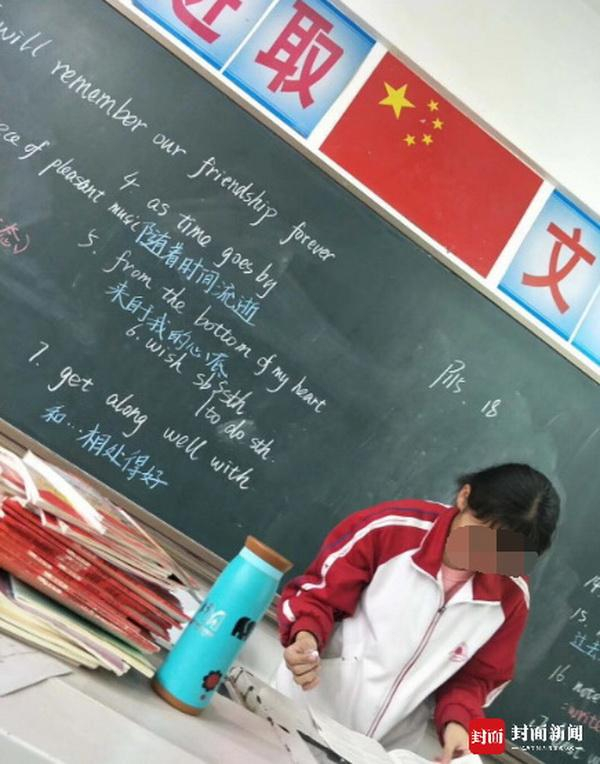 进取
文
will remember our friendship forever
of pleasant music
4. as time goes by
随着时间流逝
5. from the bottom of my heart
来自于我的心底
6. wish sb sth
to do sth.
7. get along well with
和…相处得好
P115. 18
15.
过去
16. note
封面 封面新闻